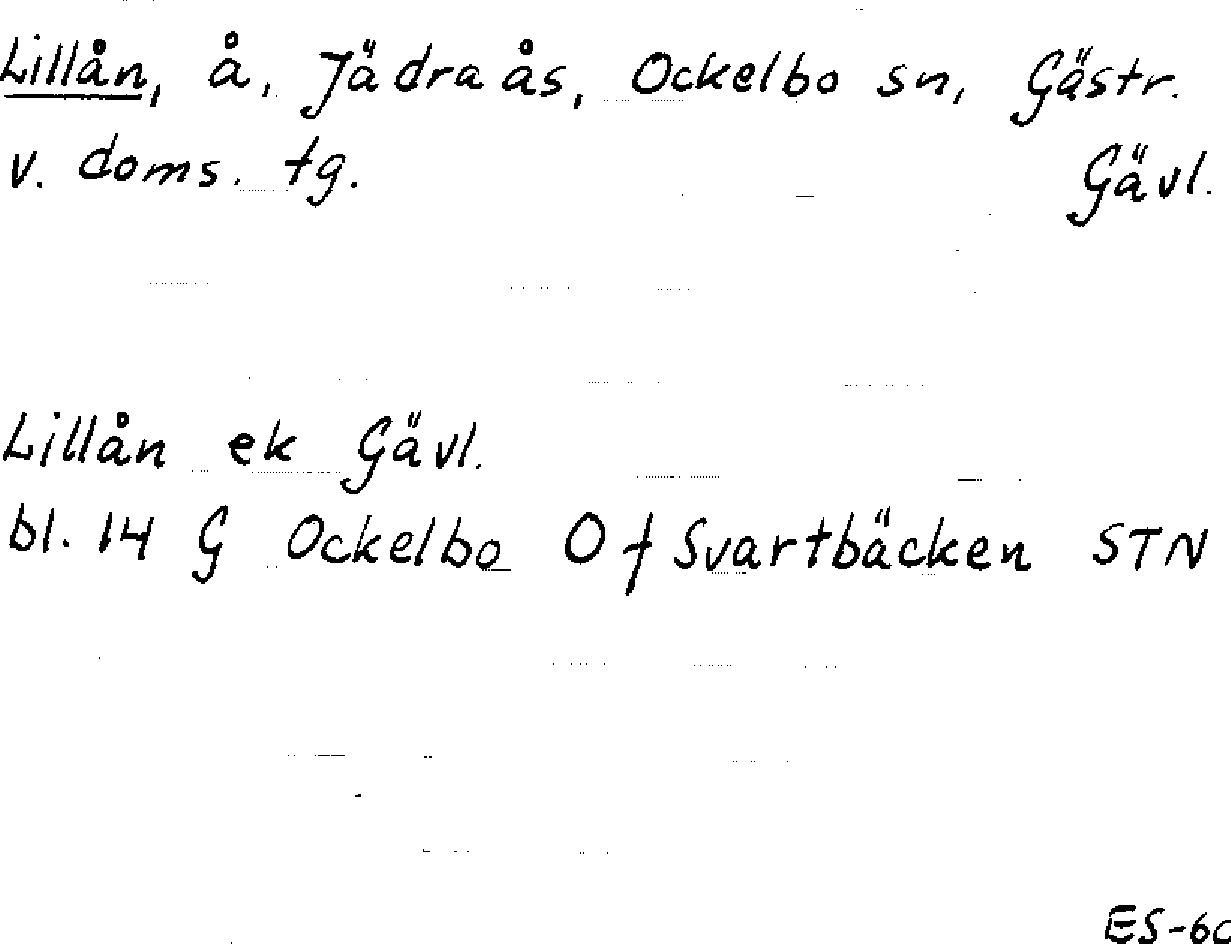 Lillån, å, Jädraås, Ockelbo sn, Gästr.
v. doms. tg. Gävl.
Lillån ek Gävl.
bl. 14 G Ockelbo O f Svartbäcken STN
ES-60